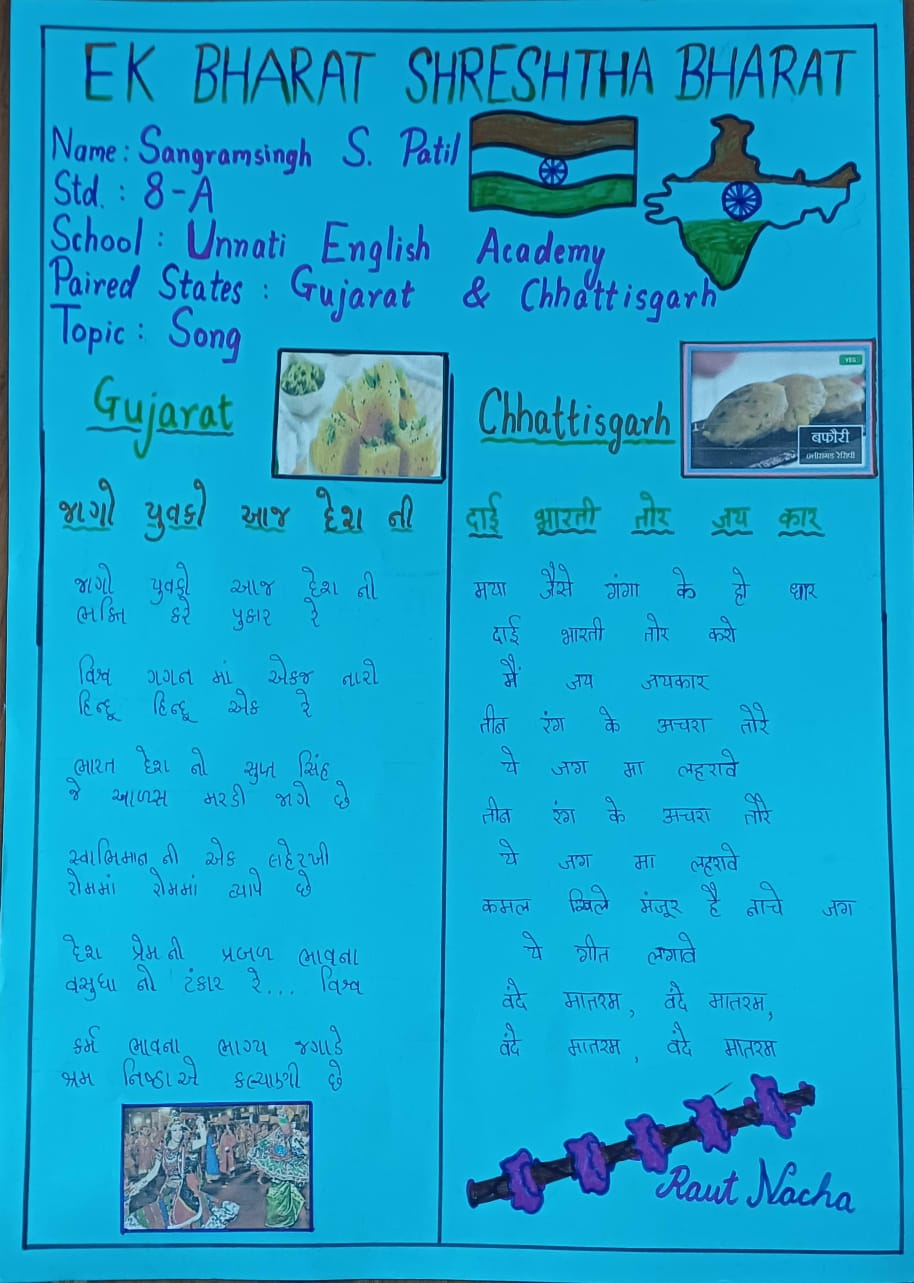 EK BHARAT SHRESHTHA BHARAT
Name: Sangramsingh S. Patil
Std. : 8-A
School : Unnati English Academy
Paired States : Gujarat & Chhattisgarh
Topic : Song
Gujarat
જાગો યુવકો આજ દેશ ની
જાગો યુવકો આજ દેશ ની
ભક્તિ કરે પુકાર રે
વિશ્વ ગગન માં એકજ નારો
હિન્દૂ હિન્દૂ એક રે
ભારત દેશ નો સુપ્ત સિંહ
જે આળસ મરડી જાગે છે
સ્વાભિમાન ની એક લહેરખી
રોમમાં રોમમાં વ્યાપે છે
દેશ પ્રેમ ની પ્રબળ ભાવના
વસુધા નો ટંકાર રે... વિશ્વ
કર્મ ભાવના ભાગ્ય જગાડે
શ્રમ નિષ્ઠાએ કલ્યાણી છે
Chhattisgarh
VEG
बफौरी
छत्तीसगढ़ रेसिपी
दाई भारती तोर जय कार
मया जैसे गंगा के हो धार
दाई भारती तोर करो
मैं जय जयकार
तीन रंग के अचरा तोरे
ये जग मा लहरावे
तीन रंग के अचरा तोरे
ये जग मा लहरावे
कमल खिले मंजूर है नाचे जग
ये गीत लगावे
वंदे मातरम, वंदे मातरम,
वंदे मातरम, वंदे मातरम
Raut Nacha